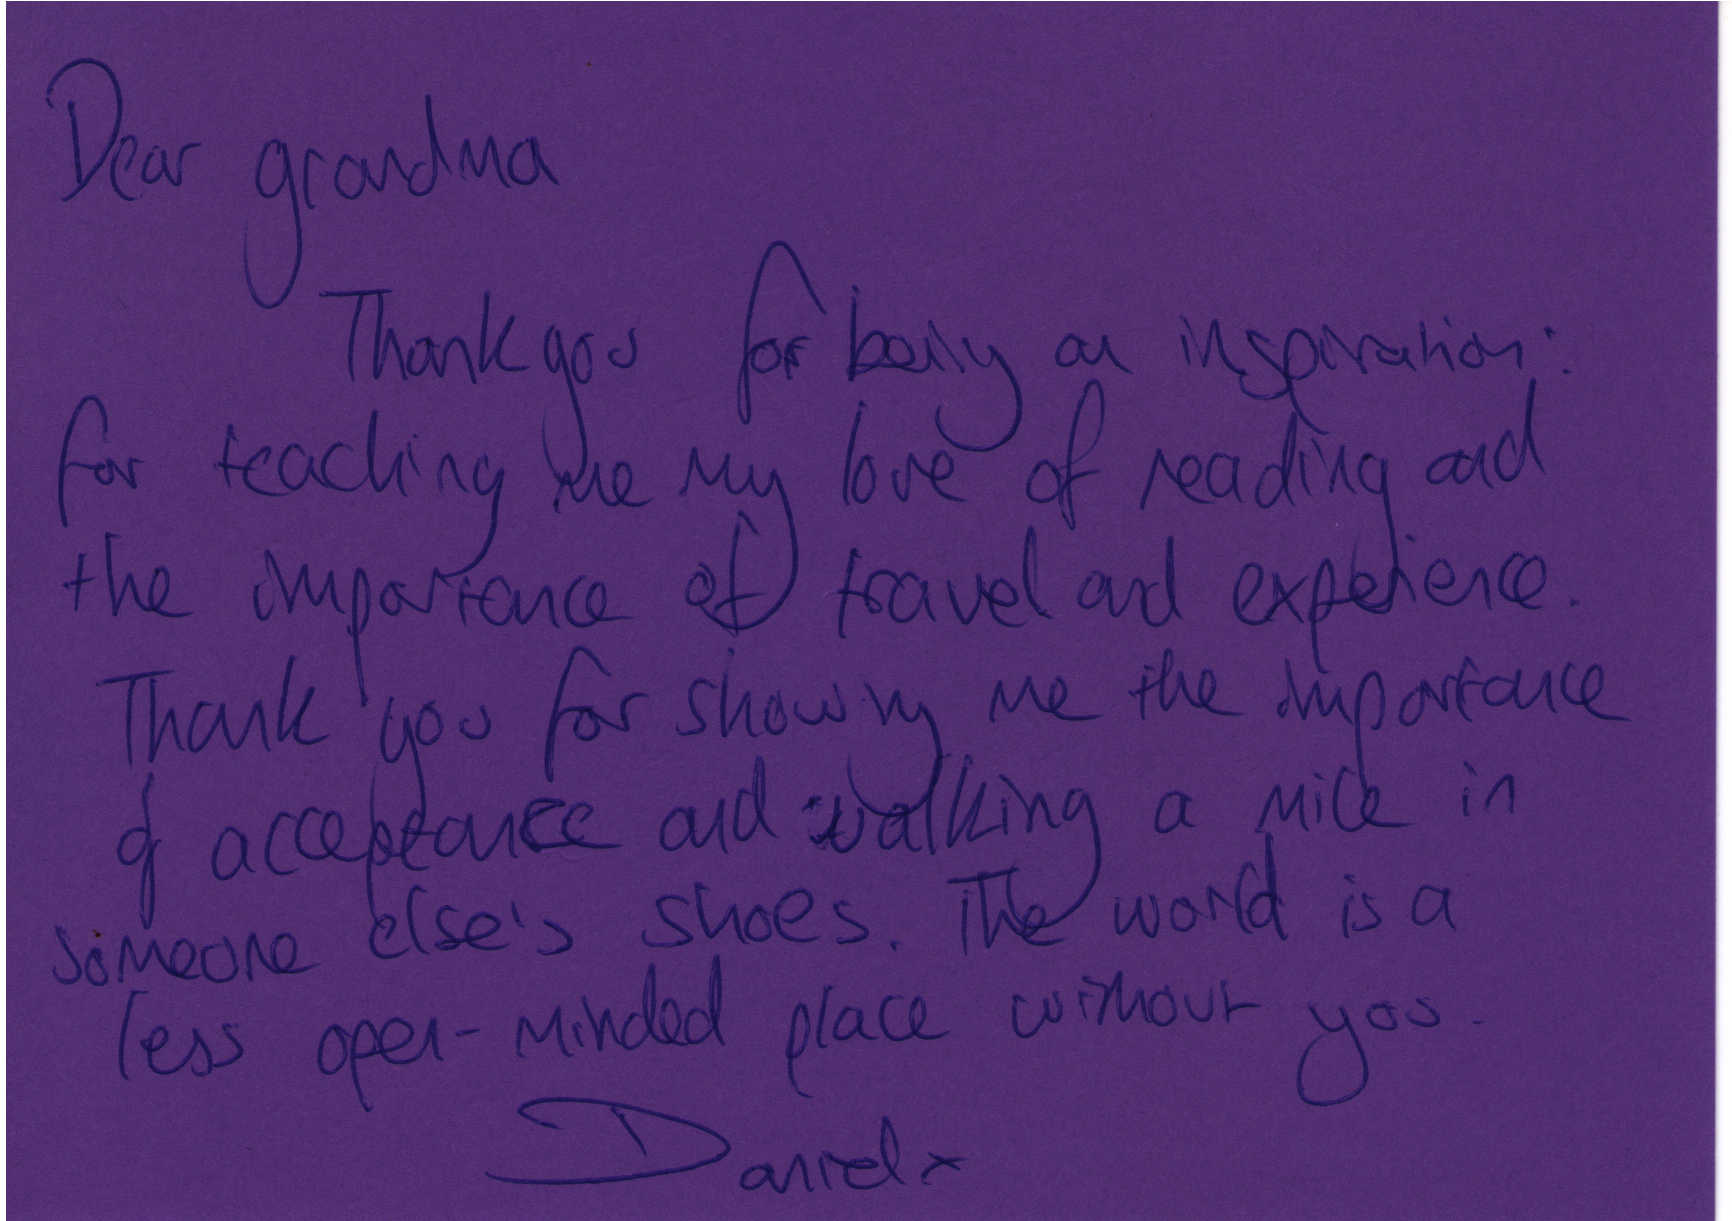 Dear grandma
Thank you for being an inspiration:
for teaching me my love of reading and
the importance of travel and experience.
Thank you for showing me the importance
of acceptance and walking a mile in
someone else's shoes. The world is a
less open-minded place without you.
Daniel x